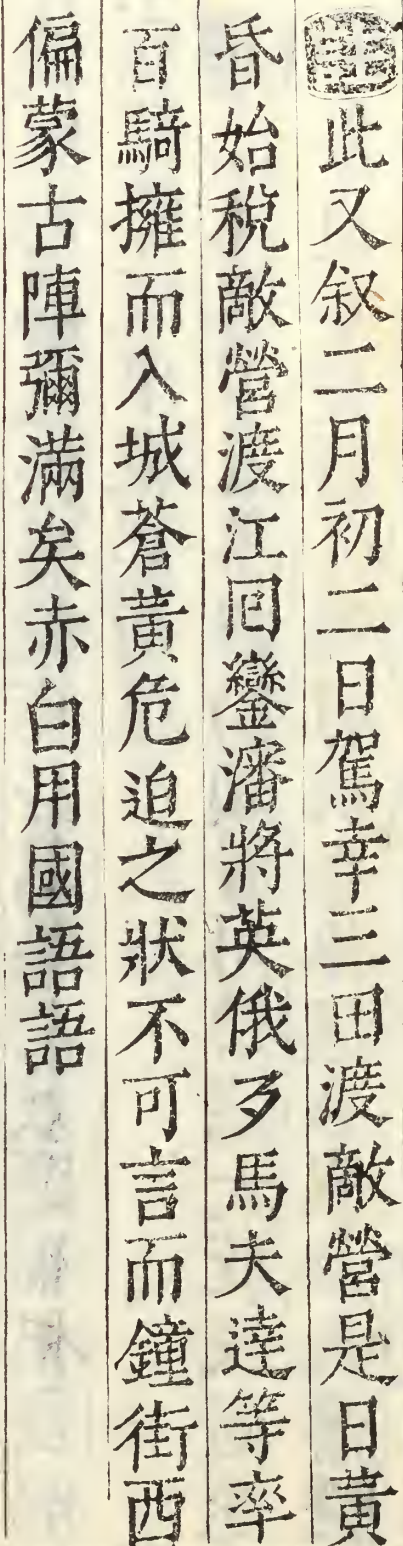 此又叙二月初二日駕幸三田渡敵營是日黃
昏始稅敵營渡江回鑾瀋將英俄歹馬夫達等率
百騎擁而入城蒼黃危迫之狀不可言而鐘街西
偏蒙古陣彌滿矣赤白用國語語